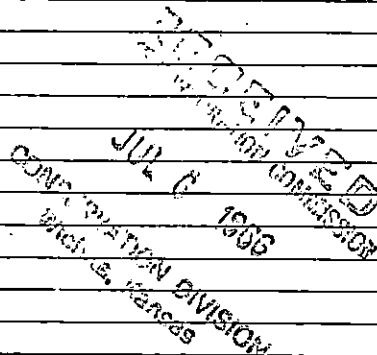 RECEIVED
CORPORATION COMMISSION
JUL 6 1966
CONSERVATION DIVISION
Wichita, Kansas